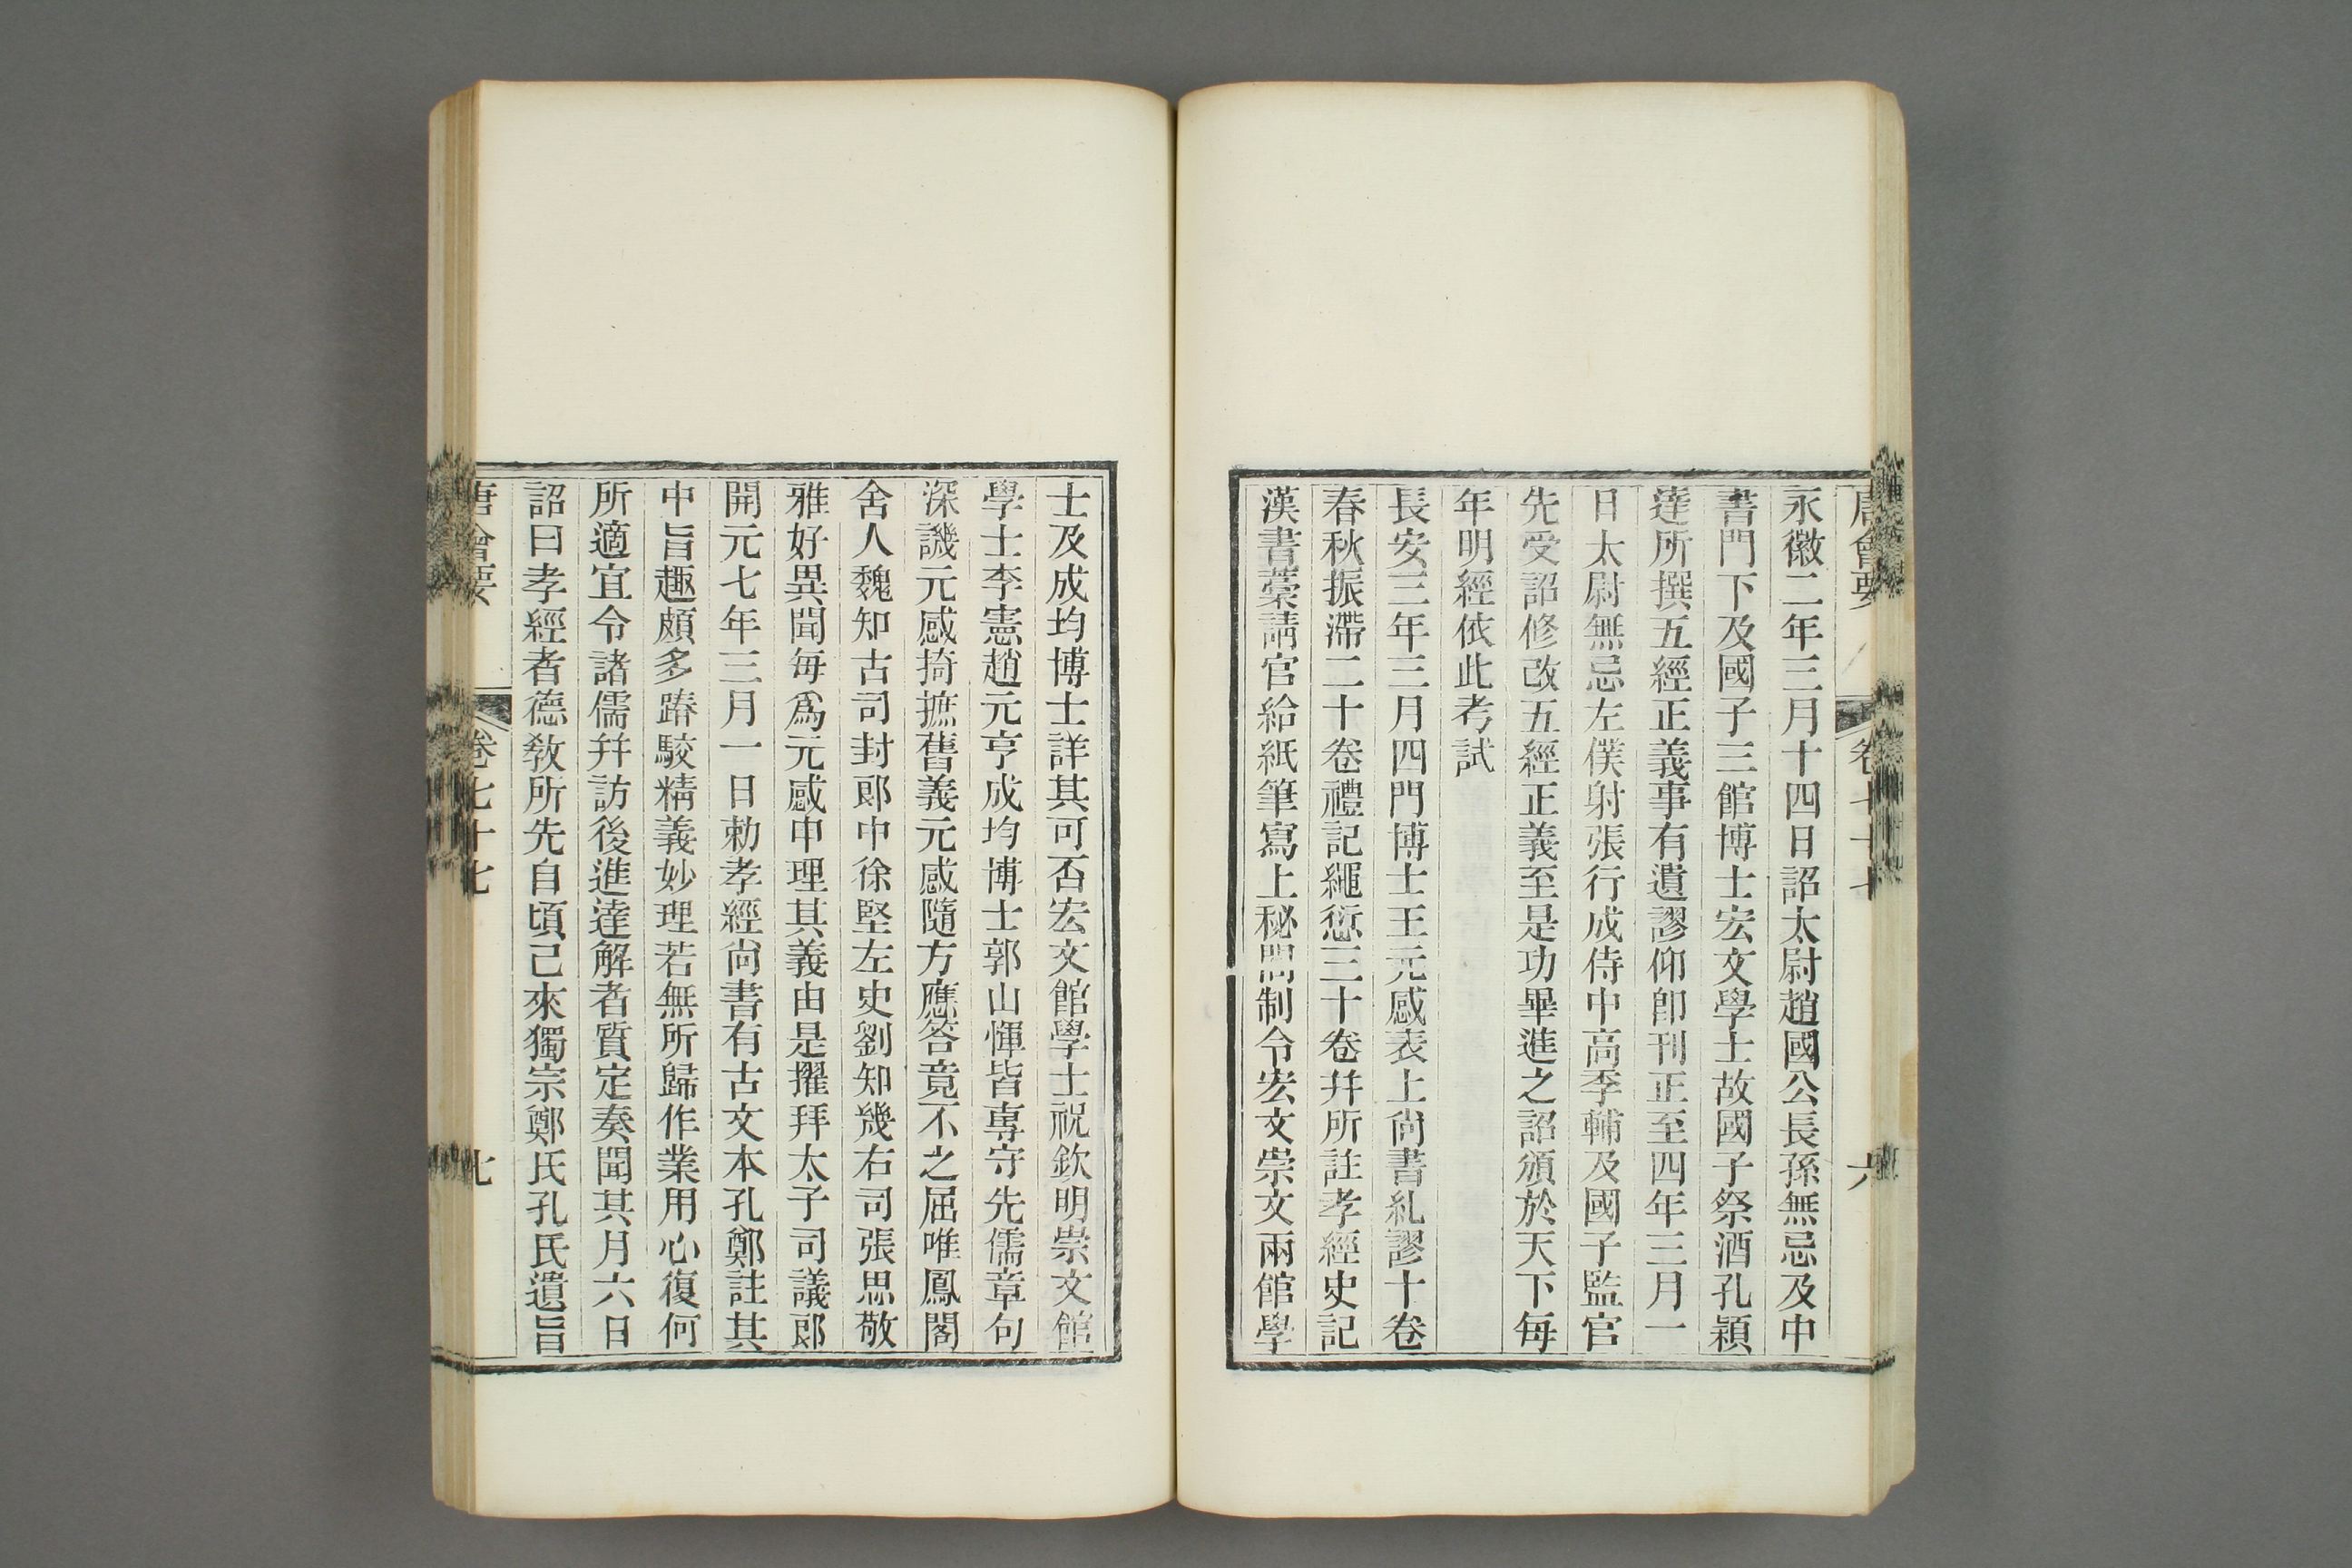 唐會要 卷七十七 六
永徽二年三月十四日詔太尉趙國公長孫無忌及中
書門下及國子三館博士宏文學士故國子祭酒孔穎
達所撰五經正義事有遺謬仰卽刊正至四年三月一
日太尉無忌左僕射張行成侍中高季輔及國子監官
先受詔修改五經正義至是功畢進之詔頒於天下每
年明經依此考試
長安三年三月四門博士王元感表上尚書糺謬十卷
春秋振滯二十卷禮記繩愆三十卷幷所註孝經史記
漢書藁請官給紙筆寫上秘閣制令宏文崇文兩館學
士及成均博士詳其可否宏文館學士祝欽明崇文館
學士李憲趙元亨成均博士郭山惲皆專守先儒章句
深譏元感掎摭舊義元感隨方應答竟不之屈唯鳳閣
舍人魏知古司封郎中徐堅左史劉知幾右司張思敬
雅好異聞每爲元感申理其義由是擢拜太子司議郎
開元七年三月一日勅孝經尚書有古文本孔鄭註其
中旨趣頗多踳駮精義妙理若無所歸作業用心復何
所適宜令諸儒幷訪後進達解者質定奏聞其月六日
詔曰孝經者德敎所先自頃己來獨宗鄭氏孔氏遺旨
唐會要 卷七十七 七